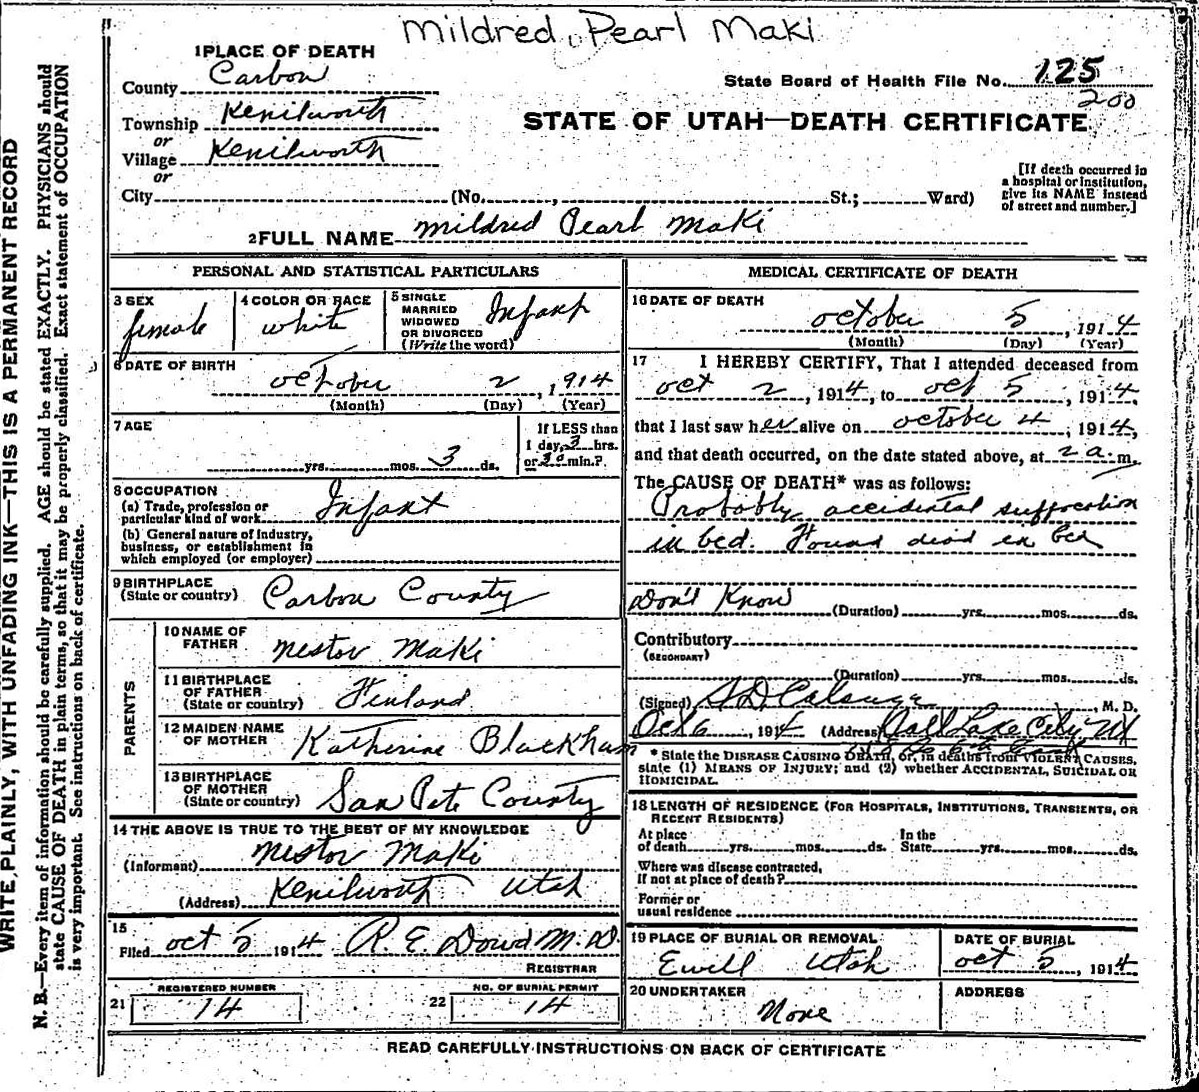 Mildred Pearl Maki
1 PLACE OF DEATH
County Carbon
State Board of Health File No. 125
200
Township Kenilworth
or
Village Kenilworth
or
STATE OF UTAH—DEATH CERTIFICATE
City (No. , St.; Ward)
[If death occurred in
a hospital or institution,
give its NAME instead
of street and number.]
2 FULL NAME Mildred Pearl Maki
PERSONAL AND STATISTICAL PARTICULARS
3 SEX
female
4 COLOR OR RACE
white
5 SINGLE
MARRIED
WIDOWED
OR DIVORCED
(Write the word)
Infant
6 DATE OF BIRTH
October 2, 1914
(Month) (Day) (Year)
7 AGE
yrs. mos. 3 ds.
If LESS than
1 day, 3 hrs.
or 30 min.?
8 OCCUPATION
(a) Trade, profession or
particular kind of work Infant
(b) General nature of industry,
business, or establishment in
which employed (or employer)
9 BIRTHPLACE
(State or country) Carbon County
PARENTS
10 NAME OF
FATHER Nestor Maki
11 BIRTHPLACE
OF FATHER
(State or country) Finland
12 MAIDEN NAME
OF MOTHER Katherine Blackham
13 BIRTHPLACE
OF MOTHER
(State or country) San Pete County
14 THE ABOVE IS TRUE TO THE BEST OF MY KNOWLEDGE
(Informant) Nestor Maki
(Address) Kenilworth Utah
15
Filed Oct 5 1914 R. E. Dowd M. D.
REGISTRAR
REGISTERED NUMBER
21 14
NO. OF BURIAL PERMIT
22 14
MEDICAL CERTIFICATE OF DEATH
16 DATE OF DEATH
October 5, 1914
(Month) (Day) (Year)
17 I HEREBY CERTIFY, That I attended deceased from
Oct 2, 1914, to Oct 5, 1914,
that I last saw her alive on October 4, 1914,
and that death occurred, on the date stated above, at 2 a. m.
The CAUSE OF DEATH* was as follows:
Probably accidental suffocation
in bed. Found dead in bed
Don't Know (Duration) yrs. mos. ds.
Contributory
(SECONDARY)
(Duration) yrs. mos. ds.
(Signed) , M. D.
Oct 6, 1914 (Address) Salt Lake City, Ut
* State the DISEASE CAUSING DEATH, or, in deaths from VIOLENT CAUSES,
state (1) MEANS OF INJURY; and (2) whether ACCIDENTAL, SUICIDAL OR
HOMICIDAL.
18 LENGTH OF RESIDENCE (FOR HOSPITALS, INSTITUTIONS, TRANSIENTS, OR
RECENT RESIDENTS)
At place
of death yrs. mos. ds.
In the
State yrs. mos. ds.
Where was disease contracted,
if not at place of death?
Former or
usual residence
19 PLACE OF BURIAL OR REMOVAL
Ewell Utah
DATE OF BURIAL
Oct 5, 1914
20 UNDERTAKER
None
ADDRESS
READ CAREFULLY INSTRUCTIONS ON BACK OF CERTIFICATE
WRITE PLAINLY, WITH UNFADING INK—THIS IS A PERMANENT RECORD
N. B.—Every item of information should be carefully supplied. AGE should be stated EXACTLY. PHYSICIANS should
state CAUSE OF DEATH in plain terms, so that it may be properly classified. Exact statement of OCCUPATION
is very important. See instructions on back of certificate.